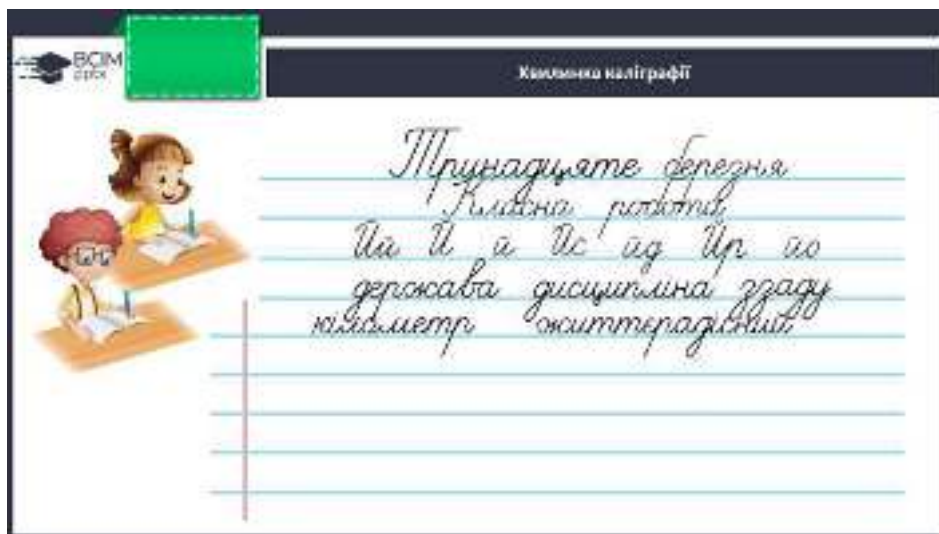 ВСІМ
pptx
Хвилинка каліграфії
Тринадцяте березня
Класна робота
Йй Й й Йс йд Йр йо
держава дисципліна ззаду
кілометр життєрадісний